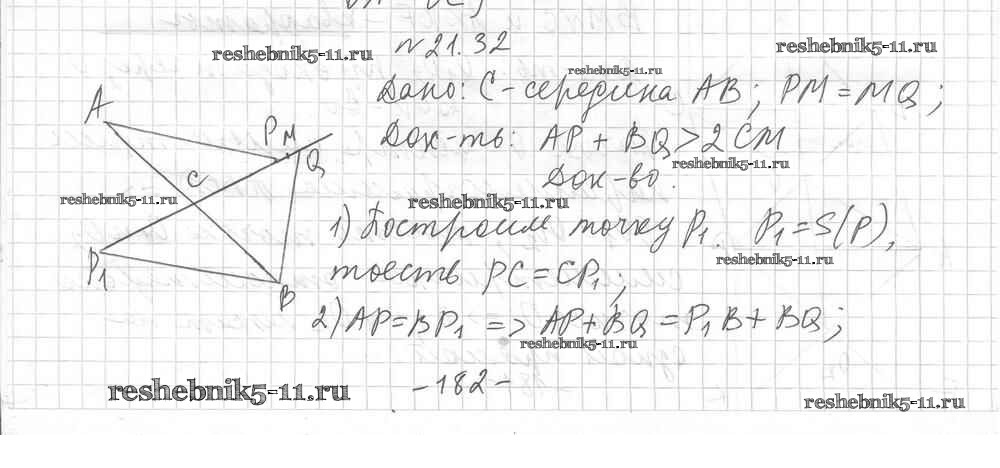 № 21.32
reshebnik5-11.ru
reshebnik5-11.ru
reshebnik5-11.ru
Дано: C - середина AB; PM = MQ;
Док-ть: AP + BQ > 2 CM
reshebnik5-11.ru
Док-во:
A
P M
Q
C
P₁
B
reshebnik5-11.ru
reshebnik5-11.ru
1) Построим точку P₁. P₁ = S(P),
reshebnik5-11.ru
тоесть PC = CP₁;
2) AP = BP₁ => AP + BQ = P₁B + BQ;
reshebnik5-11.ru
- 182 -
reshebnik5-11.ru
reshebnik5-11.ru